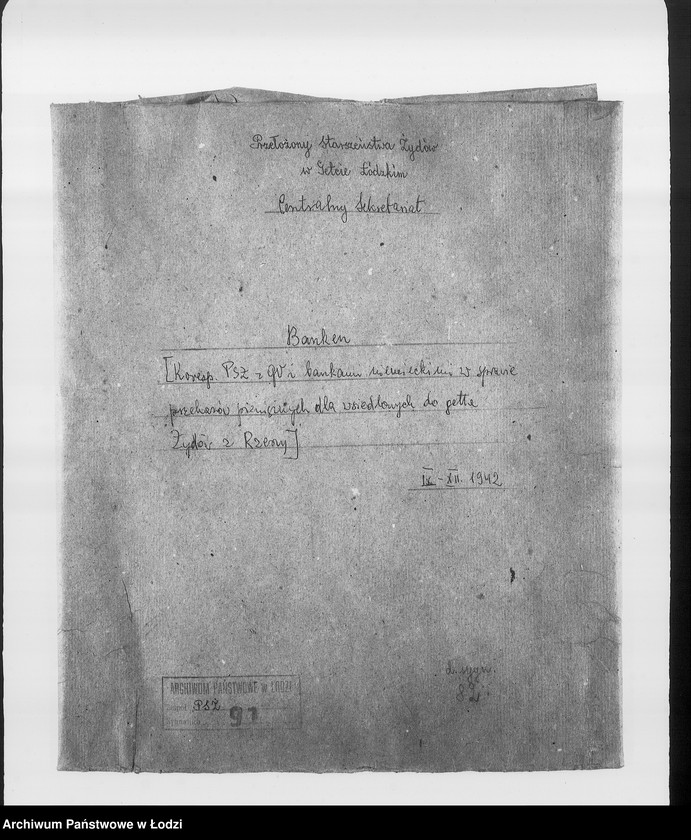 Przełożony Starszeństwa Żydów
w Getcie Łódzkim
Centralny Sekretariat
Banken
[Koresp. PSŻ z GV i bankami niemieckimi w sprawie
przekazów pieniężnych dla wsiedlonych do getta
Żydów z Rzeszy]
IX-XII. 1942
d. sygn.
82.
ARCHIWUM PAŃSTWOWE w ŁODZI
Zespół PSŻ
Sygnatura 91
Archiwum Państwowe w Łodzi